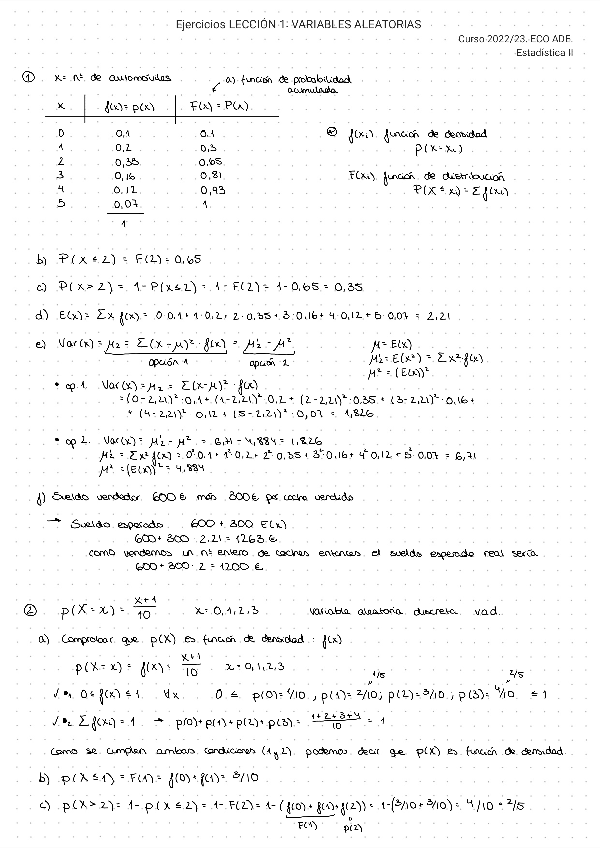 Ejercicios LECCIÓN 1: VARIABLES ALEATORIAS
Curso 2022/23. ECO ADE.
Estadística II
① X= nº de automóviles
a) función de probabilidad acumulada
x f(x)= p(x) F(x) = P(x)
0 0,1 0.1
1 0,2 0,3
2 0,35 0,65
3 0,16 0,81
4 0,12 0,93
5 0,07 1
1
f(xi) función de densidad
P(X=xi)
F(xi) función de distribución
P(X ≤ xi) = Σ f(xi)
b) P(X ≤ 2) = F(2) = 0,65
c) P(X > 2) = 1 - P(X ≤ 2) = 1 - F(2) = 1 - 0,65 = 0,35
d) E(x) = Σx f(x) = 0·0.1 + 1·0,2 + 2·0,35 + 3·0,16 + 4·0,12 + 5·0,07 = 2,21
e) Var(x) = μ2 = Σ(x - μ)² · f(x) = μ'2 - μ²
opción 1 opción 2
μ = E(x)
μ'2 = E(x²) = Σ x² f(x)
μ² = (E(x))²
• op 1. Var(x) = μ2 = Σ(x-μ)² · f(x)
= (0-2,21)² · 0,1 + (1-2,21)² 0,2 + (2-2,21)² · 0,35 + (3-2,21)² · 0,16 +
+ (4-2,21)² 0,12 + (5-2,21)² · 0,07 = 1,826
• op 2. Var(x) = μ'2 - μ² = 6,71 - 4,884 = 1,826
μ'2 = Σx² f(x) = 0²·0.1 + 1²·0,2 + 2²·0,35 + 3²·0,16 + 4²·0,12 + 5²·0.07 = 6,71
μ² = (E(x))² = 4,884
f) Sueldo vendedor 600€ más 300€ por coche vendido
→ Sueldo esperado 600 + 300 E(x)
600 + 300 · 2.21 = 1263 €
como vendemos un nº entero de coches entonces el sueldo esperado real sería
600 + 300 · 2 = 1200 €
② p(X=x) = x+1/10 x = 0,1,2,3 variable aleatoria discreta v.a.d.
a) Comprobar que p(X) es función de densidad: f(x)
p(X=x) = f(x) = x+1/10 x = 0,1,2,3
1/5 2/5
✓ •1 0 ≤ f(x) ≤ 1 ∀x 0 ≤ p(0)= 1/10 , p(1) = 2/10 ; p(2) = 3/10 ; p(3) = 4/10 ≤ 1
✓ •2 Σ f(xi) = 1 → p(0) + p(1) + p(2) + p(3) = 1+2+3+4/10 = 1
Como se cumplen ambas condiciones (1 y 2) podemos decir que p(X) es función de densidad
b) p(X ≤ 1) = F(1) = f(0) + f(1) = 3/10
c) p(X > 2) = 1 - p(X ≤ 2) = 1 - F(2) = 1 - (f(0) + f(1) + f(2)) = 1 - (3/10 + 3/10) = 4/10 = 2/5
F(1) p(2)